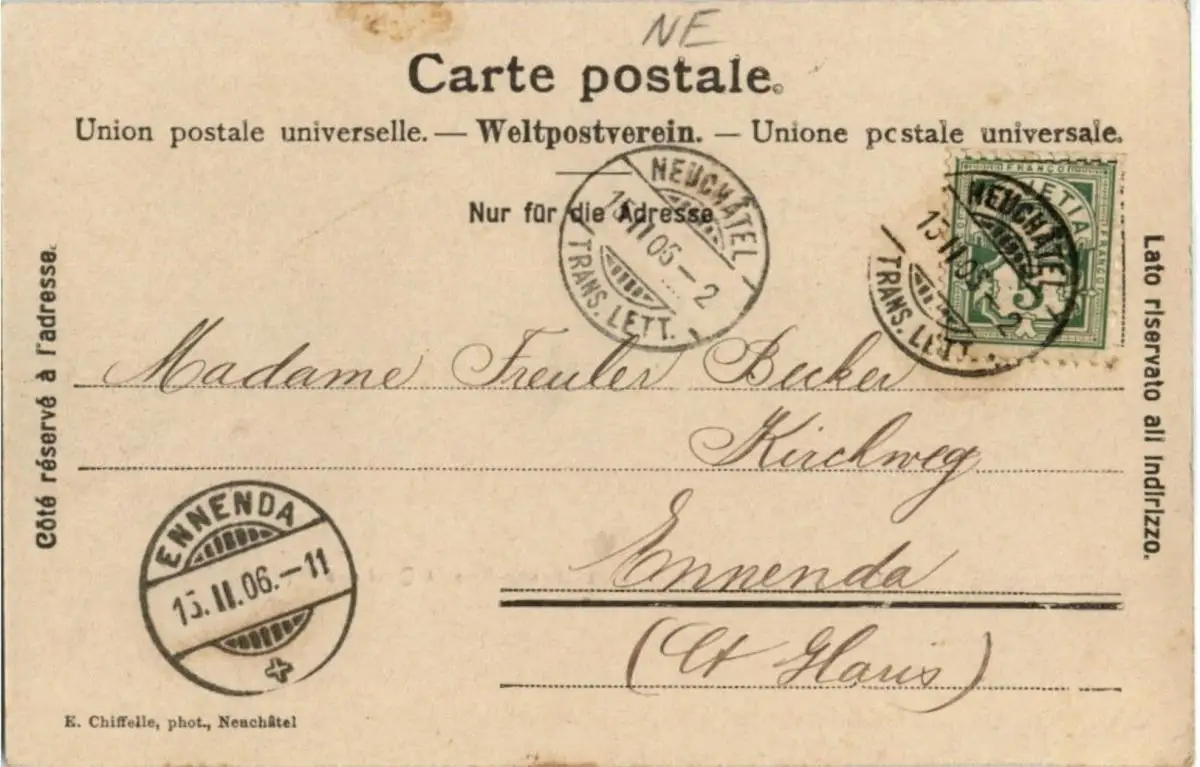 NE
Carte postale.
Union postale universelle. — Weltpostverein. — Unione postale universale.
Nur für die Adresse
NEUCHÂTEL
13.II.06–2
TRANS. LETT.
FRANCO
HELVETIA
FRANCO
5
NEUCHÂTEL
13.II.06–2
TRANS. LETT.
Côté réservé à l'adresse.
Lato riservato all indirizzo.
Madame Freuler Becker
Kirchweg
Ennenda
(Ct Glaris)
ENNENDA
13.II.06.–11
E. Chiffelle, phot., Neuchâtel